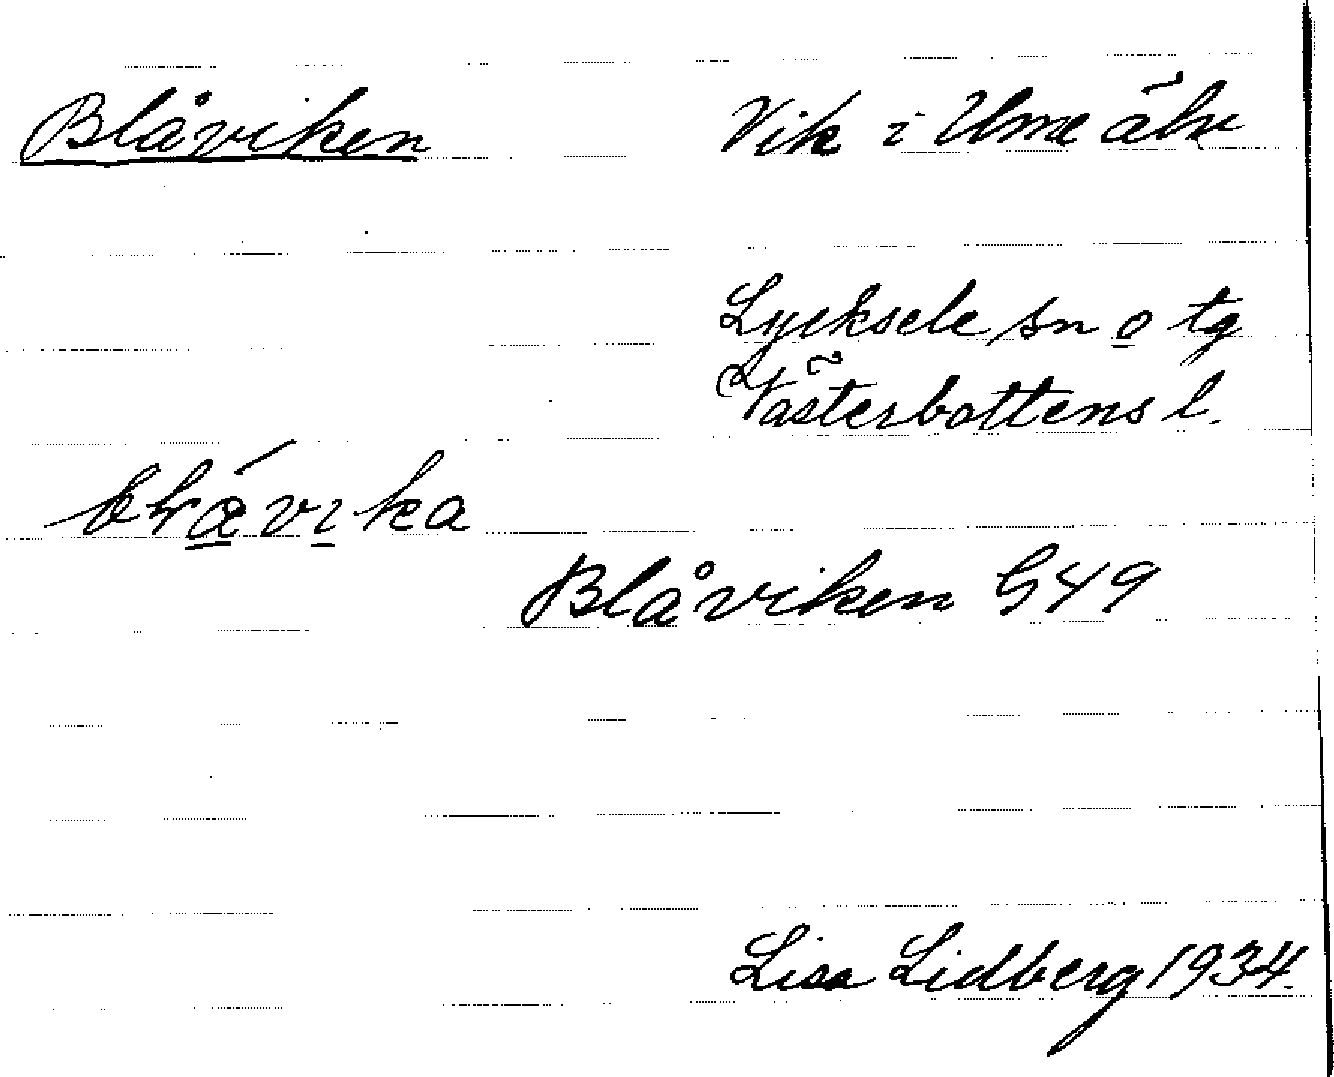 Blåviken Vik i Ume älv
Lycksele sn o tg
Västerbottens l.
Blåviken G49
Lisa Lidberg 1934.